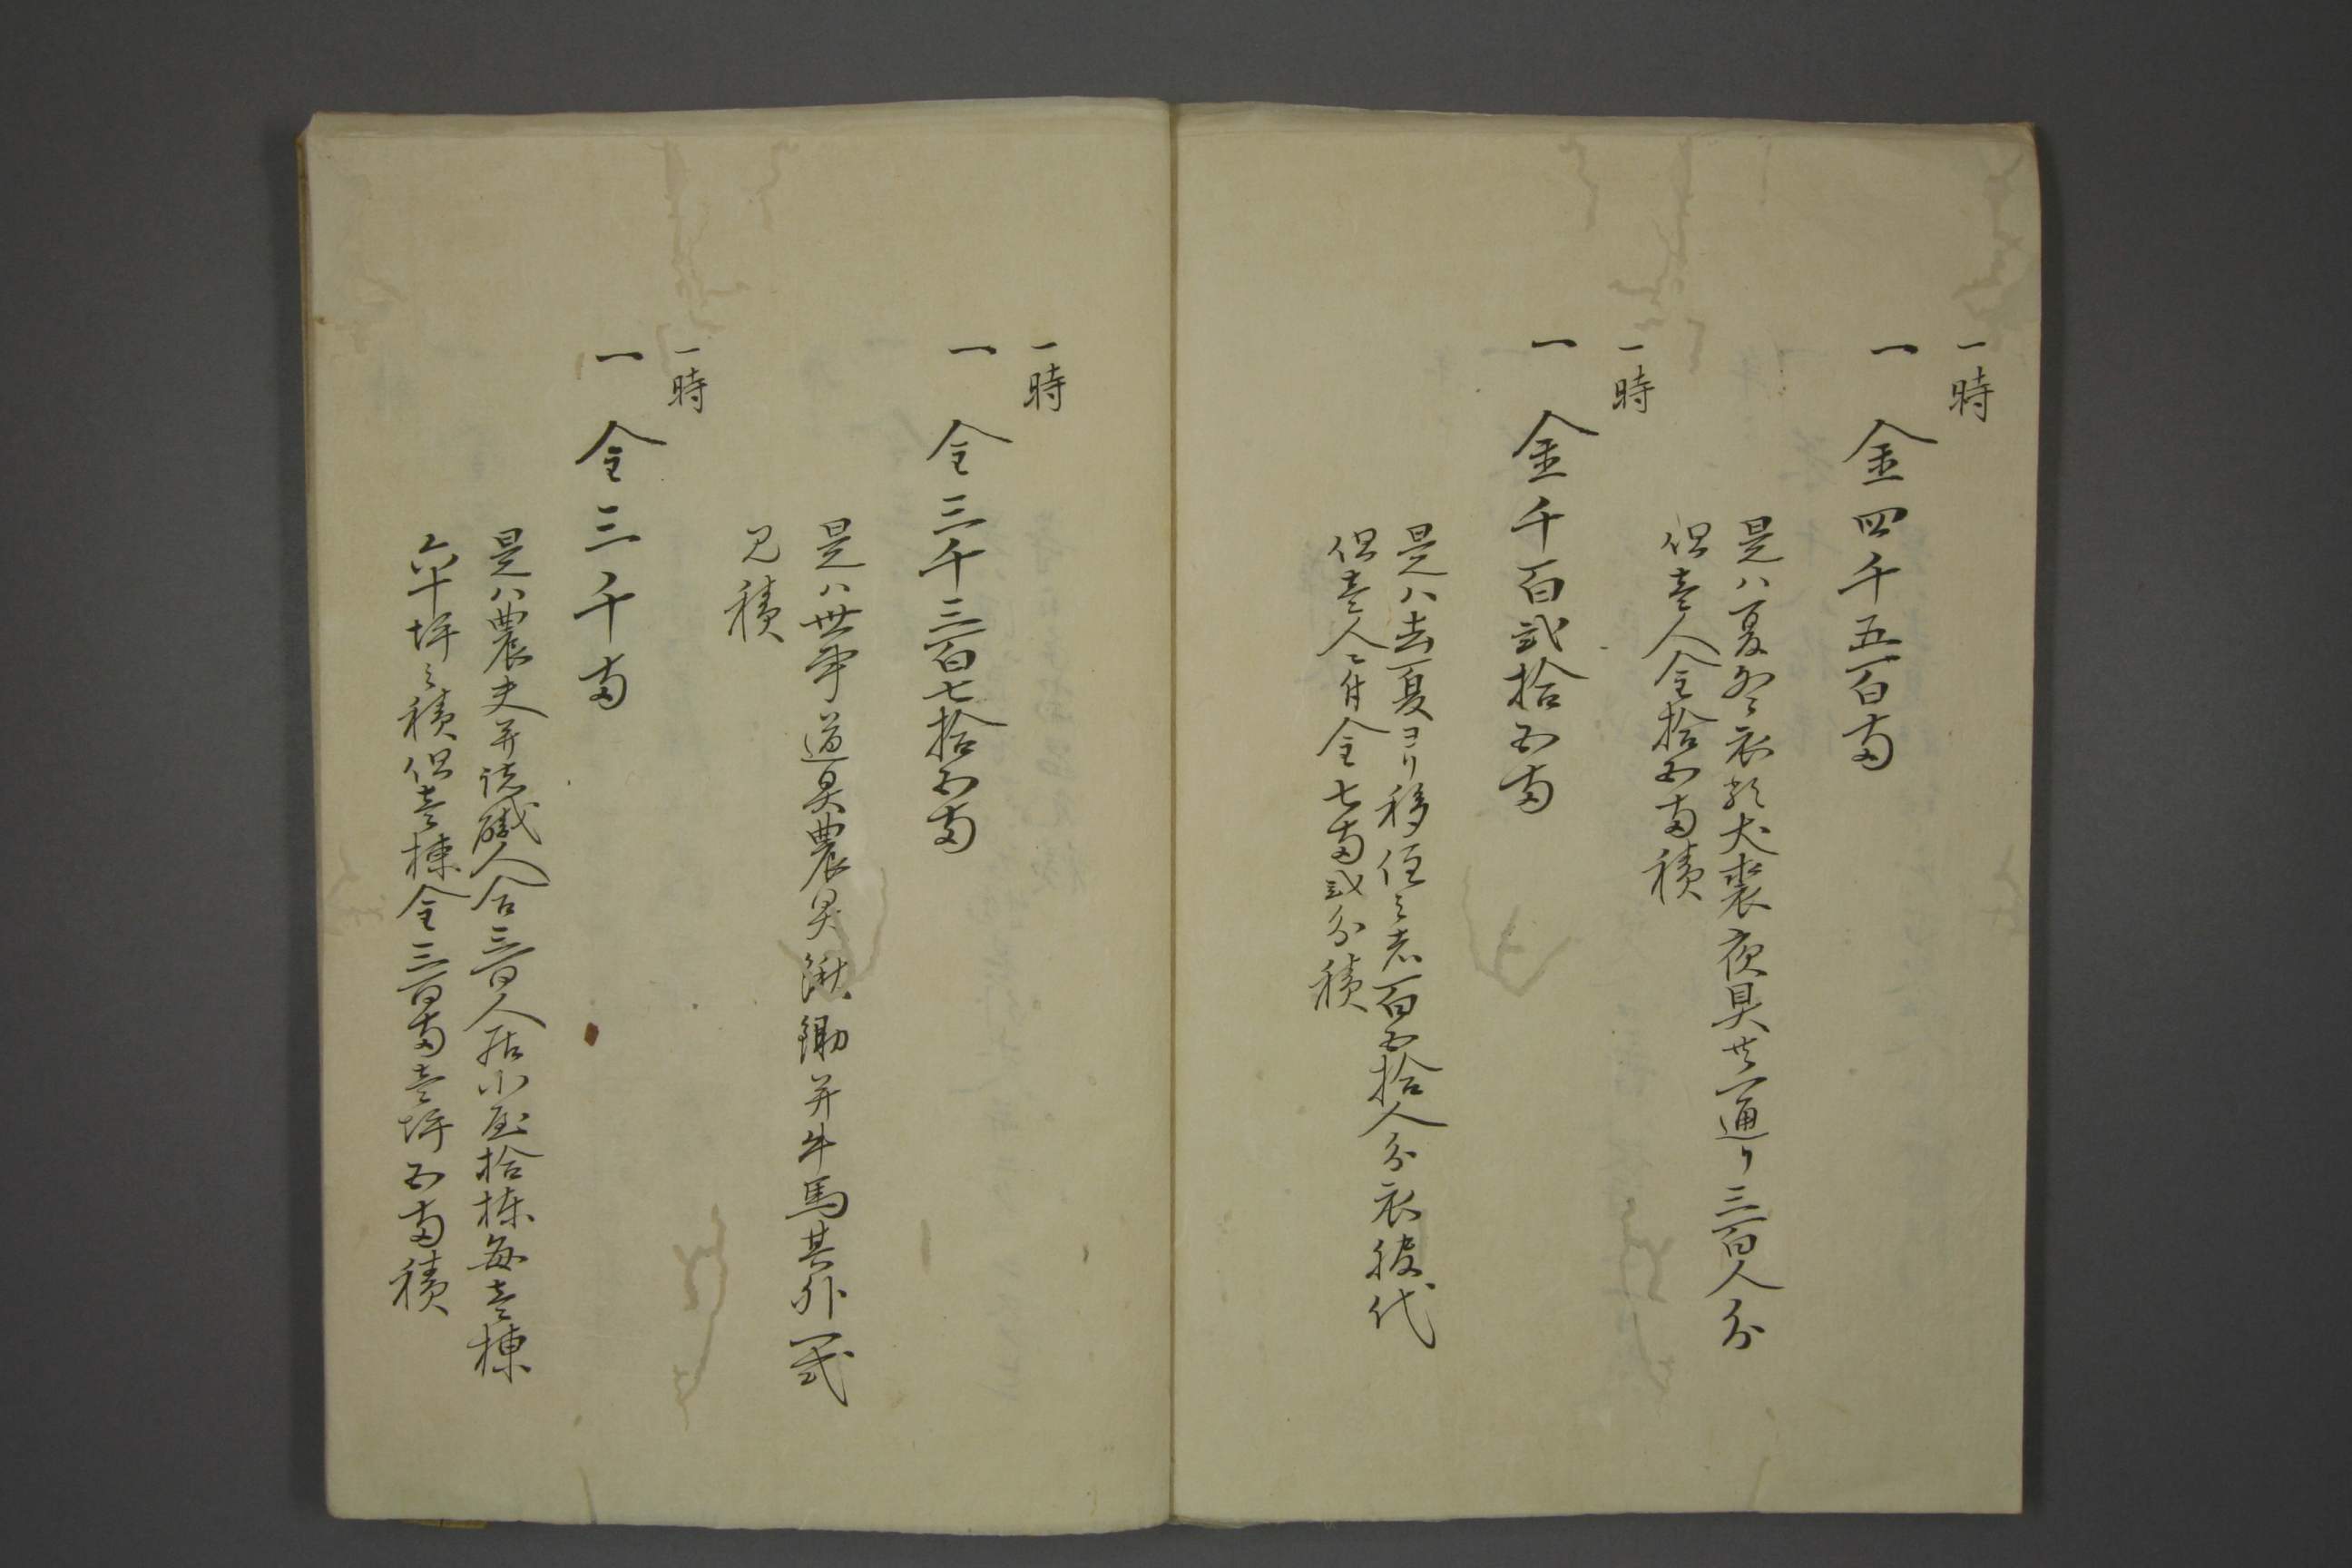 一時
一 金四千五百両
是ハ夏冬衣類犬裘夜具共一通り三百人分
但壱人金拾五両積
一時
一 金千百弐拾五両
是ハ去夏ヨリ移住之者百五拾人分衣被代
但壱人ニ付金七両弐分積
一時
一 金三千三百七拾五両
是ハ世帯道具農具鍬鋤并牛馬其外一式
見積
一時
一 金三千両
是ハ農夫并諸職人合三百人居小屋拾棟毎壱棟
六十坪之積但壱棟金三百両壱坪五両積